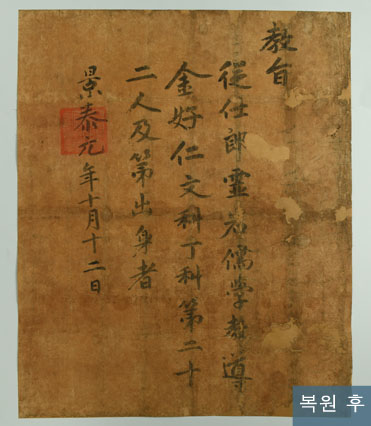 教旨
從仕郎靈光儒學教導
金好仁文科丁科第二十
二人及第出身者
景泰元年十月十二日
복원 후